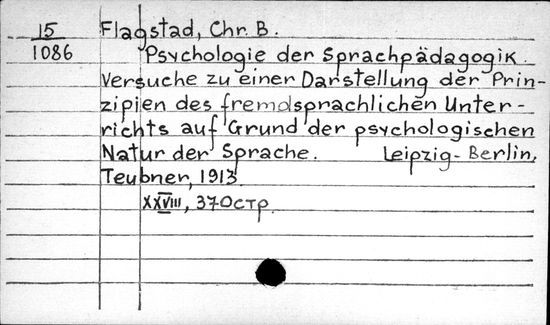 15
1086
Flagstad, Chr. B.
Psychologie der Sprachpädagogik.
Versuche zu einer Darstellung der Prin-
zipien des fremdsprachlichen Unter-
richts auf Grund der psychologischen
Natur der Sprache. Leipzig-Berlin,
Teubner, 1913.
XXVIII, 370 стр.